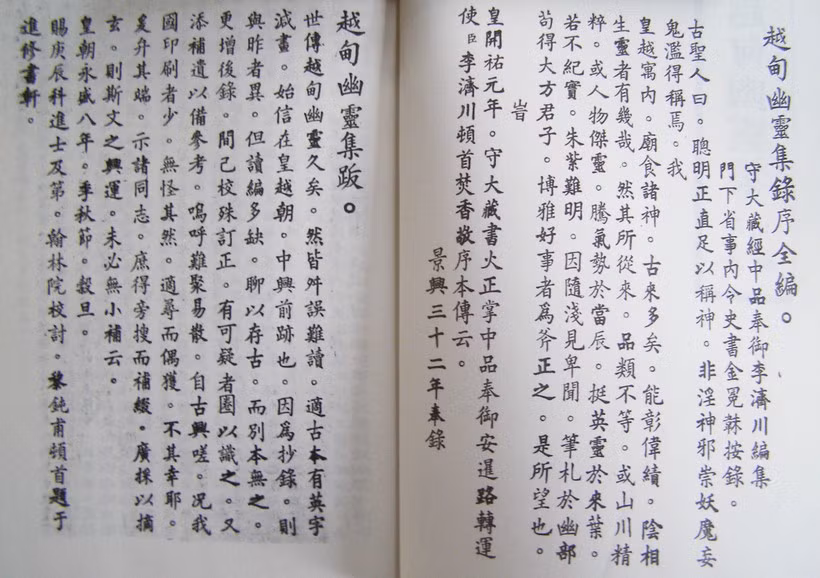 越甸幽靈集錄序全編。
守大藏經中品奉御李濟川編集
門下省事内令史書金冕
按錄。
古聖人曰。聰明正直足以稱神。非淫神邪祟妖魔妄
鬼濫得稱焉。我
皇越寓内。廟食諸神。古來多矣。能彰偉績。陰相
生靈者有幾哉。然其所從來。品類不等。或山川精
粹。或人物傑靈。騰氣勢於當辰。挺英靈於來葉。
若不紀實。朱紫難明。因隨淺見卑聞。筆札於幽部
苟得大方君子。博雅好事者爲斧正之。是所望也。
旹
皇開祐元年。守大藏書火正掌中品奉御安暹路轉運
使臣李濟川頓首焚香敬序本傳云。
景興三十二年奉錄
越甸幽靈集跋。
世傳越甸幽靈久矣。然皆舛誤難讀。適古本有英字
減畫。始信在皇越朝。中興前跡也。因爲抄錄。則
與昨者異。但讀編多缺。聊以存古。而別本無之。
更增後錄。間己校殊訂正。有可疑者圈以識之。又
添補遺以備參考。嗚呼難聚易散。自古興嗟。况我
國印刷者少。無怪其然。適尋而偶獲。不其幸耶。
爰升其端。示諸同志。庶得旁搜而補綴。廣採以摘
玄。則斯文之興運。未必無小補云。
皇朝永盛八年。季秋節。穀旦。
賜庚辰科進士及第。翰林院校討。黎鈍甫頓首題于
進修書軒。